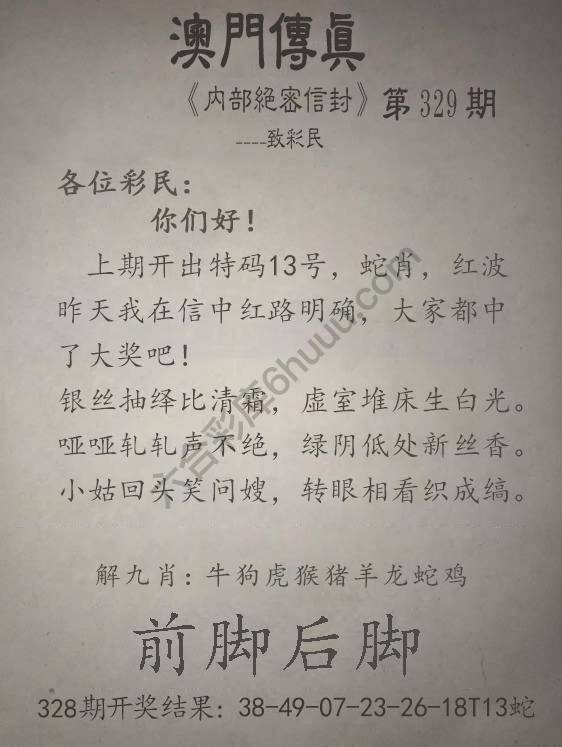 澳門傳眞
《内部絕密信封》第329期
----致彩民
各位彩民：
你们好！
上期开出特码13号，蛇肖，红波
昨天我在信中红路明确，大家都中
了大奖吧！
银丝抽绎比清霜，虚室堆床生白光。
哑哑轧轧声不绝，绿阴低处新丝香。
小姑回头笑问嫂，转眼相看织成缟。
六合彩库6huuu.com
解九肖：牛狗虎猴猪羊龙蛇鸡
前脚后脚
328期开奖结果：38-49-07-23-26-18T13蛇